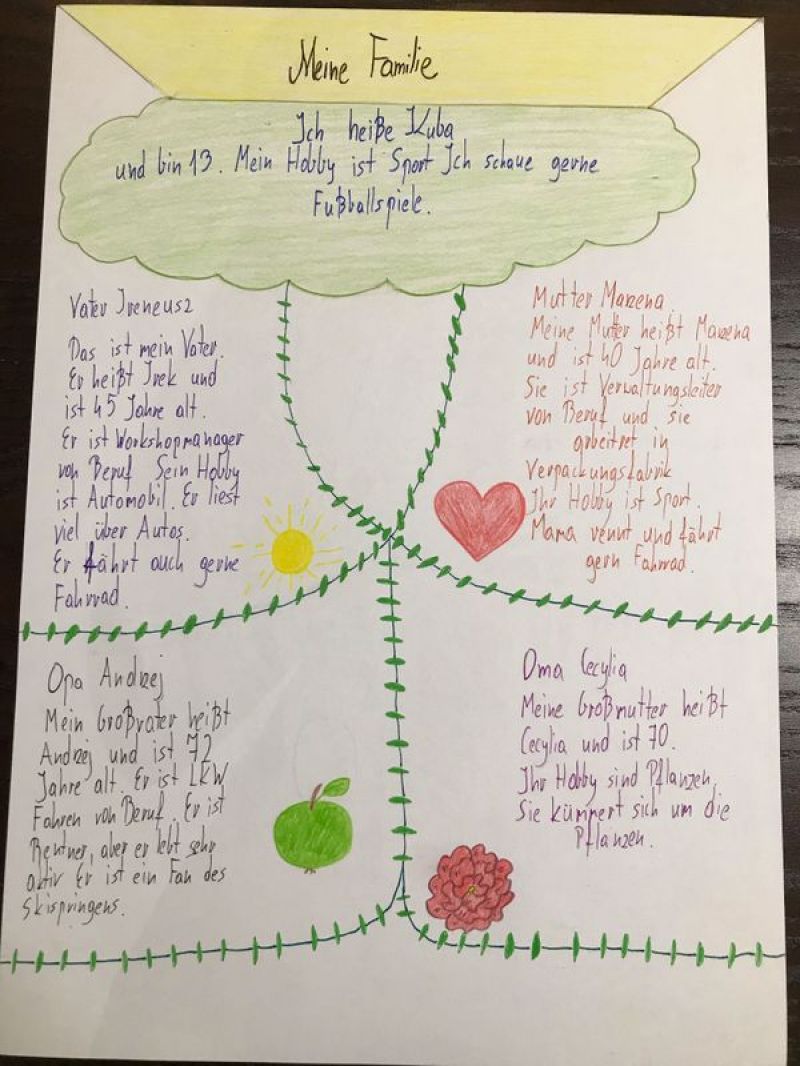 Meine Familie
Ich heiße Kuba
und bin 13. Mein Hobby ist Sport Ich schaue gerne
Fußballspiele.
Vater Ireneusz
Das ist mein Vater.
Er heißt Irek und
ist 45 Jahre alt.
Er ist Workshopmanager
von Beruf Sein Hobby
ist Automobil. Er liest
viel über Autos.
Er fährt auch gerne
Fahrrad.
Mutter Marzena
Meine Mutter heißt Marzena
und ist 40 Jahre alt.
Sie ist Verwaltungsleiter
von Beruf und sie
arbeitret in
Verpackungsfabrik
Ihr Hobby ist Sport.
Mama rennt und fährt
gern Fahrrad.
Opa Andrzej
Mein Großvater heißt
Andrzej und ist 72
Jahre alt. Er ist LKW
Fahren von Beruf. Er ist
Rentner, aber er lebt sehr
aktiv Er ist ein Fan des
Skispringens.
Oma Cecylia
Meine Großmutter heißt
Cecylia und ist 70.
Ihr Hobby sind Pflanzen.
Sie kümmert sich um die
Pflanzen.